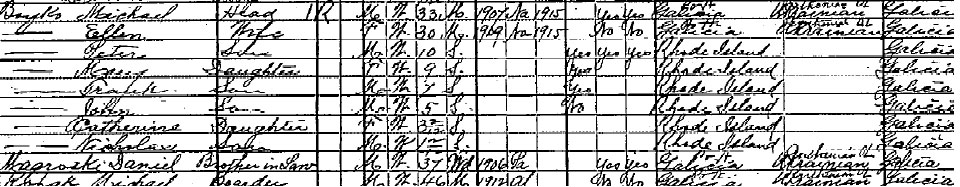 Boyko Michael Head 1 R M W 33 M 1907 Na 1915 Yes Yes Galicia Ukrainian Galicia
— Ellen Wife F W 30 M 1909 Na 1915 No No Galicia Ukrainian Galicia
— Peter Son M W 10 S Yes Yes Yes Rhode Island Galicia
— Daughter F W 9 S Yes Rhode Island Galicia
— Frank Son M W 7 S Yes Rhode Island Galicia
— John Son M W 5 S No Rhode Island Galicia
— Catherine Daughter F W S Rhode Island Galicia
— Nicholas Son M W S Rhode Island Galicia
Daniel Brother in Law M W 37 Wd 1906 Pa Yes Yes Galicia Ukrainian Galicia
Michael Boarder M W 46 M 1912 Al